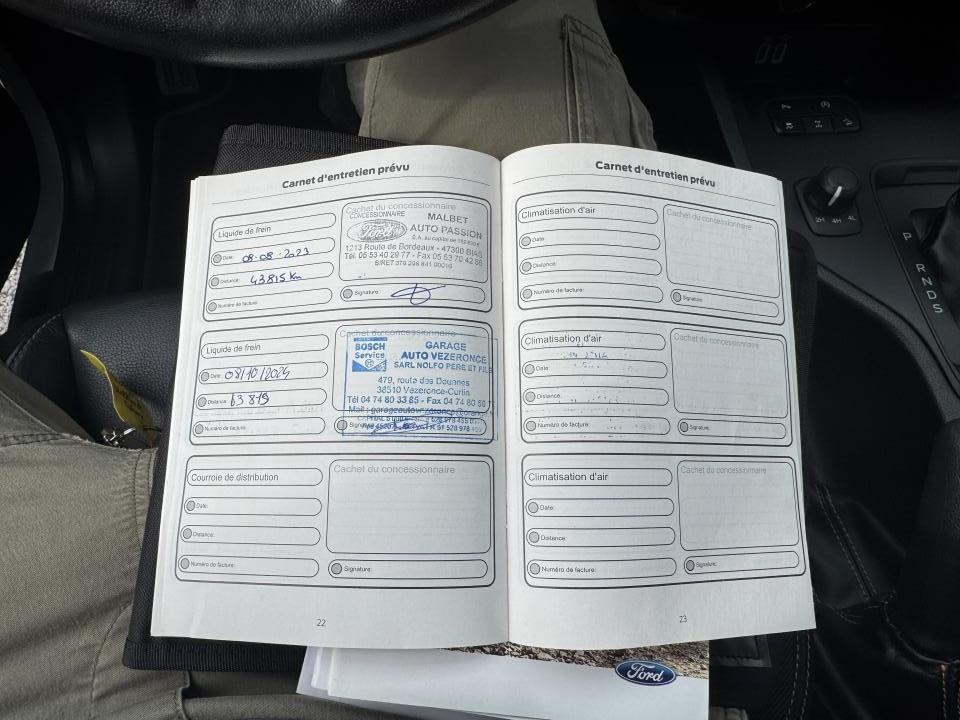 Carnet d'entretien prévu
Liquide de frein
Date: 08.08.2023
Distance: 43815 Km
Numéro de facture:
Cachet du concessionnaire
CONCESSIONNAIRE
Ford
MALBET
AUTO PASSION
S.A. au capital de
1213 Route de Bordeaux - 47300 BIAS
Tél. 05 53 40 29 77 - Fax 05 53 70 42 86
Signature:
Liquide de frein
Date: 08/10/2024
Distance: 63 819
Numéro de facture:
Cachet du concessionnaire
BOSCH
Service
GARAGE
AUTO VEZERONCE
SARL NOLFO PERE ET FILS
479, route des Douanes
38510 Vézeronce-Curtin
Tél 04 74 80 33 85 - Fax 04 74 80 50
Mail : garageautovezeronce@orange
Courroie de distribution
Date:
Distance:
Numéro de facture:
Cachet du concessionnaire
Signature:
22
Carnet d'entretien prévu
Climatisation d'air
Date:
Distance:
Numéro de facture:
Cachet du concessionnaire
Signature:
Climatisation d'air
Date:
Distance:
Numéro de facture:
Cachet du concessionnaire
Signature:
Climatisation d'air
Date:
Distance:
Numéro de facture:
Cachet du concessionnaire
Signature:
23
Ford
2H 4H 4L
P
R
N
D
S